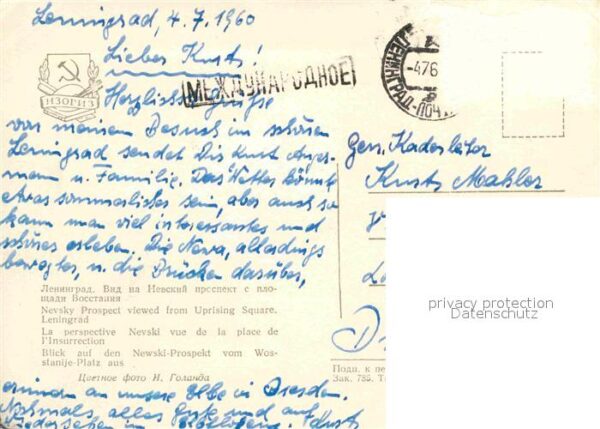 Leningrad, 4.7.1960
Lieber Kurt!
ИЗОГИЗ
МЕЖДУНАРОДНОЕ
ЛЕНИНГРАД-ПОЧ
-476
Herzliche Grüße
von meinem Besuch im schönen
Leningrad sendet Dir Kurt
u. Familie. Das Wetter könnte
etwas sommerlicher sein, aber auch so
kann man viel interessantes und
schönes erleben. Die Newa, allerdings
bewegter, u. die Brücken darüber,
Ленинград. Вид на Невский проспект с пло-
щади Восстания
Nevsky Prospect viewed from Uprising Square.
Leningrad
La perspective Nevski vue de la place de
l'Insurrection
Blick auf den Newski-Prospekt vom Wos-
stanije-Platz aus
Цветное фото И. Голанда
erinnern an unsere Elbe in Dresden.
Nochmals, alles Gute und auf
Wiedersehen in
Kurt
Gen. Kaderleiter
Kurt Mahler
D
Подп. к пе
Зак. 735. Т
privacy protection
Datenschutz